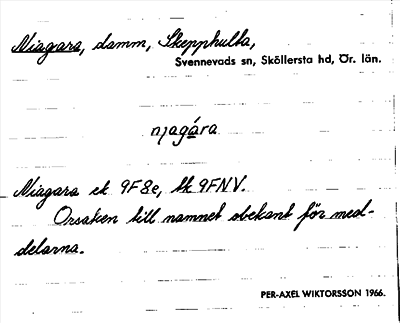 Niagara, damm, Skepphulta,
Svennevads sn, Sköllersta hd, Ör. län.
njagára
Niagara ek 9F8e, tk 9FNV.
Orsaken till namnet obekant för med-
delarna.
PER-AXEL WIKTORSSON 1966.